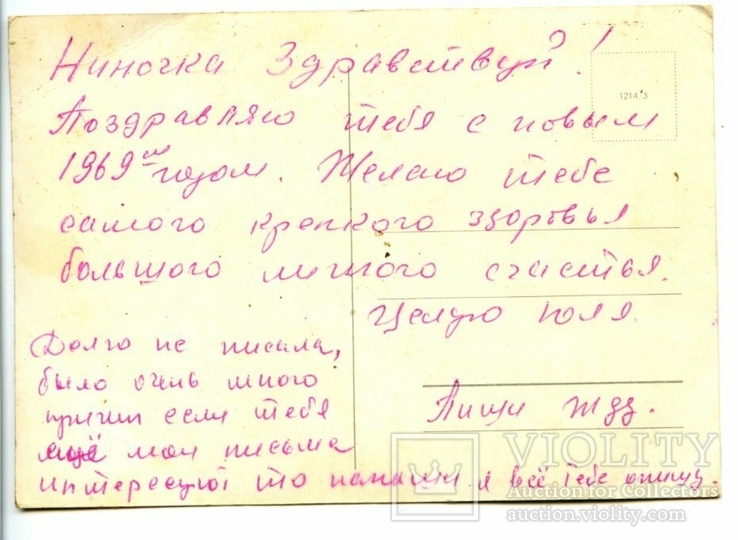 Ниночка Здравствуй!
1214/3
Поздравляю тебя с новым
1969ым годом. Желаю тебе
самого крепкого здоровья
большого личного счастья.
Целую Юля.
Долго не писала,
было очень много
причин если тебя
ещё мои письма
интересуют то напиши я всё тебе опишу.
Пиши жду.
VIOLITY
Auction for Collectors
auction.violity.com